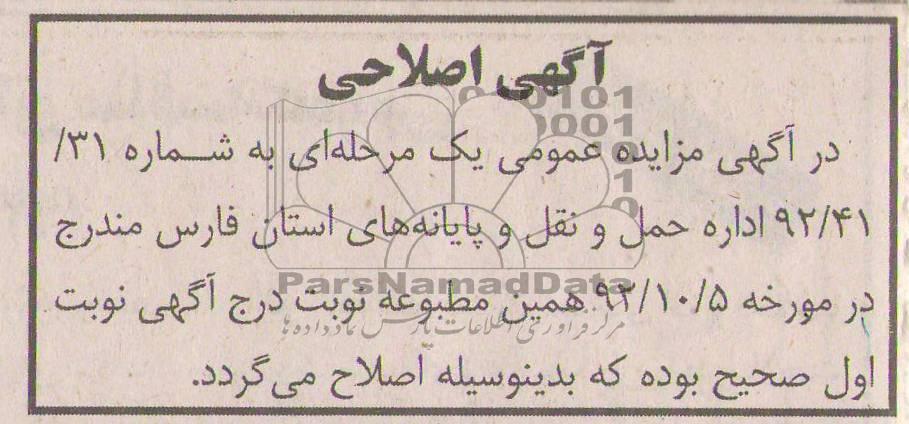 آگهی اصلاحی
در آگهی مزایده عمومی یک مرحله‌ای به شماره ۳۱/
۹۲/۴۱ اداره حمل و نقل و پایانه‌های استان فارس مندرج
در مورخه ۹۲/۱۰/۵ همین مطبوعه نوبت درج آگهی نوبت
اول صحیح بوده که بدینوسیله اصلاح می‌گردد.
ParsNamadData
مرکز فرآوری اطلاعات پارس نماد داده ها